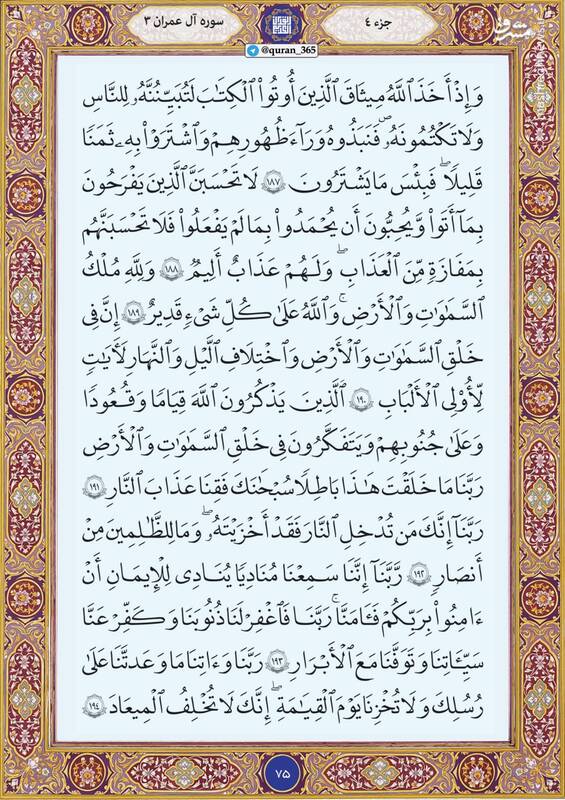 جزء ٤
سوره آل عمران ٣
@quran_365
وَإِذْ أَخَذَ ٱللَّهُ مِيثَاقَ ٱلَّذِينَ أُوتُوا۟ ٱلْكِتَٰبَ لَتُبَيِّنُنَّهُۥ لِلنَّاسِ
وَلَا تَكْتُمُونَهُۥ فَنَبَذُوهُ وَرَآءَ ظُهُورِهِمْ وَٱشْتَرَوْا۟ بِهِۦ ثَمَنًا
قَلِيلًا ۖ فَبِئْسَ مَا يَشْتَرُونَ ١٨٧ لَا تَحْسَبَنَّ ٱلَّذِينَ يَفْرَحُونَ
بِمَآ أَتَوا۟ وَّيُحِبُّونَ أَن يُحْمَدُوا۟ بِمَا لَمْ يَفْعَلُوا۟ فَلَا تَحْسَبَنَّهُم
بِمَفَازَةٍ مِّنَ ٱلْعَذَابِ ۖ وَلَهُمْ عَذَابٌ أَلِيمٌ ١٨٨ وَلِلَّهِ مُلْكُ
ٱلسَّمَٰوَٰتِ وَٱلْأَرْضِ ۗ وَٱللَّهُ عَلَىٰ كُلِّ شَىْءٍ قَدِيرٌ ١٨٩ إِنَّ فِى
خَلْقِ ٱلسَّمَٰوَٰتِ وَٱلْأَرْضِ وَٱخْتِلَٰفِ ٱلَّيْلِ وَٱلنَّهَارِ لَءَايَٰتٍ
لِّأُو۟لِى ٱلْأَلْبَٰبِ ١٩٠ ٱلَّذِينَ يَذْكُرُونَ ٱللَّهَ قِيَٰمًا وَقُعُودًا
وَعَلَىٰ جُنُوبِهِمْ وَيَتَفَكَّرُونَ فِى خَلْقِ ٱلسَّمَٰوَٰتِ وَٱلْأَرْضِ
رَبَّنَا مَا خَلَقْتَ هَٰذَا بَٰطِلًا سُبْحَٰنَكَ فَقِنَا عَذَابَ ٱلنَّارِ ١٩١
رَبَّنَآ إِنَّكَ مَن تُدْخِلِ ٱلنَّارَ فَقَدْ أَخْزَيْتَهُۥ ۖ وَمَا لِلظَّٰلِمِينَ مِنْ
أَنصَارٍ ١٩٢ رَّبَّنَآ إِنَّنَا سَمِعْنَا مُنَادِيًا يُنَادِى لِلْإِيمَٰنِ أَنْ
ءَامِنُوا۟ بِرَبِّكُمْ فَـَٔامَنَّا ۚ رَبَّنَا فَٱغْفِرْ لَنَا ذُنُوبَنَا وَكَفِّرْ عَنَّا
سَيِّـَٔاتِنَا وَتَوَفَّنَا مَعَ ٱلْأَبْرَارِ ١٩٣ رَبَّنَا وَءَاتِنَا مَا وَعَدتَّنَا عَلَىٰ
رُسُلِكَ وَلَا تُخْزِنَا يَوْمَ ٱلْقِيَٰمَةِ ۗ إِنَّكَ لَا تُخْلِفُ ٱلْمِيعَادَ ١٩٤
٧٥